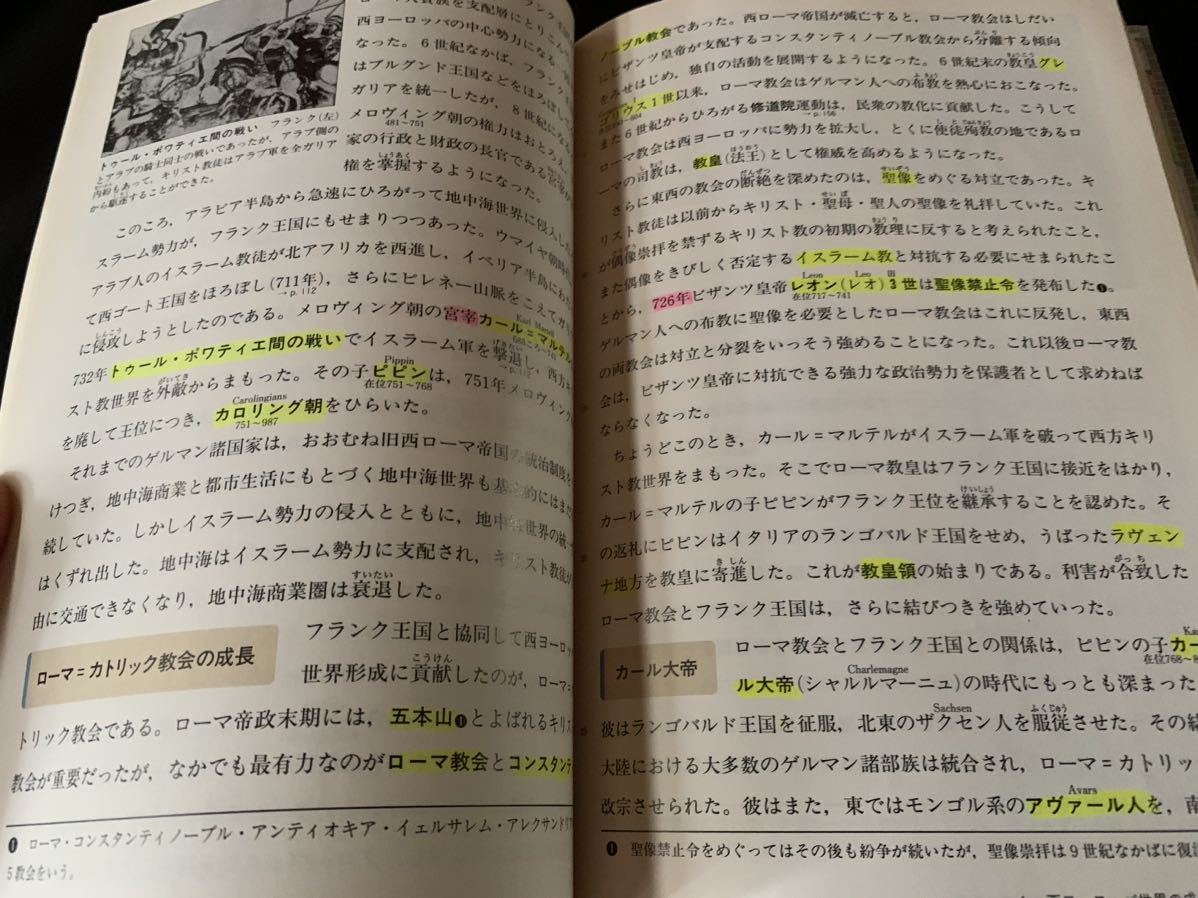 ランク王
ローマ人貴族を支配層にとりこん
西ヨーロッパの中心勢力になる
なった。6世紀なかば，フランク
はブルグンド王国などをほろぼし
ガリアを統一したが，8世紀になる
メロヴィング朝の権力はおとろえ
481~751
家の行政と財政の長官である宮宰が
権を掌握するようになった。
しょうあく
トゥール・ポワティエ間の戦い フランク(左)
とアラブの騎士同士の戦いであったが，アラブ側の
内紛もあって，キリスト教徒はアラブ軍を全ガリア
から駆逐することができた。
このころ，アラビア半島から急速にひろがって地中海世界に侵入した
スラーム勢力が，フランク王国にもせまりつつあった。ウマイヤ朝時代
アラブ人のイスラーム教徒が北アフリカを西進し，イベリア半島にわた
て西ゴート王国をほろぼし(711年)，さらにピレネー山脈をこえてガリ
→p.112
に侵攻しようとしたのである。メロヴィング朝の宮宰カール＝マルテル
しんこう
Karl Martell
732年トゥール・ポワティエ間の戦いでイスラーム軍を撃退し，西方キ
げきたい
スト教世界を外敵からまもった。その子ピピンは，751年メロヴィング
がいてき
Pippin
在位751~768
を廃して王位につき，カロリング朝をひらいた。
Carolingians
751~987
それまでのゲルマン諸国家は，おおむね旧西ローマ帝国の統治制度を
けつぎ，地中海商業と都市生活にもとづく地中海世界も基本的にはまだ
続していた。しかしイスラーム勢力の侵入とともに，地中海世界の統一
はくずれ出した。地中海はイスラーム勢力に支配され，キリスト教徒が
由に交通できなくなり，地中海商業圏は衰退した。
すいたい
ローマ＝カトリック教会の成長
フランク王国と協同して西ヨーロッ
世界形成に貢献したのが，ローマ＝
こうけん
トリック教会である。ローマ帝政末期には，五本山❶とよばれるキリス
教会が重要だったが，なかでも最有力なのがローマ教会とコンスタンテ
❶ ローマ・コンスタンティノープル・アンティオキア・イェルサレム・アレクサンドリア
5教会をいう。
ノープル教会であった。西ローマ帝国が滅亡すると，ローマ教会はしだい
にビザンツ皇帝が支配するコンスタンティノープル教会から分離する傾向
ぶんり
をみせはじめ，独自の活動を展開するようになった。6世紀末の教皇グレ
きょうこう
ゴリウス1世以来，ローマ教会はゲルマン人への布教を熱心におこなった。
ふきょう
また6世紀からひろがる修道院運動は，民衆の教化に貢献した。こうして
→p.156
ローマ教会は西ヨーロッパに勢力を拡大し，とくに使徒殉教の地であるロ
しとじゅんきょう
ーマの司教は，教皇(法王)として権威を高めるようになった。
ほうおう
さらに東西の教会の断絶を深めたのは，聖像をめぐる対立であった。キ
だんぜつ
せいぞう
リスト教徒は以前からキリスト・聖母・聖人の聖像を礼拝していた。これ
せいぼ
が偶像崇拝を禁ずるキリスト教の初期の教理に反すると考えられたこと，
きょうり
また偶像をきびしく否定するイスラーム教と対抗する必要にせまられたこ
とから，726年ビザンツ皇帝レオン(レオ)3世は聖像禁止令を発布した❶。
Leon
Leo Ⅲ
在位717~741
ゲルマン人への布教に聖像を必要としたローマ教会はこれに反発し，東西
の両教会は対立と分裂をいっそう強めることになった。これ以後ローマ教
会は，ビザンツ皇帝に対抗できる強力な政治勢力を保護者として求めねば
ならなくなった。
ちょうどこのとき，カール＝マルテルがイスラーム軍を破って西方キリ
スト教世界をまもった。そこでローマ教皇はフランク王国に接近をはかり，
カール＝マルテルの子ピピンがフランク王位を継承することを認めた。そ
けいしょう
の返礼にピピンはイタリアのランゴバルド王国をせめ，うばったラヴェン
ナ地方を教皇に寄進した。これが教皇領の始まりである。利害が合致した
きしん
がっち
ローマ教会とフランク王国は，さらに結びつきを強めていった。
カール大帝
ローマ教会とフランク王国との関係は，ピピンの子カー
在位768~8
ル大帝(シャルルマーニュ)の時代にもっとも深まった
Charlemagne
彼はランゴバルド王国を征服し，北東のザクセン人を服従させた。その結
Sachsen
ふくじゅう
大陸における大多数のゲルマン諸部族は統合され，ローマ＝カトリッ
改宗させられた。彼はまた，東ではモンゴル系のアヴァール人を，南
Avars
❶ 聖像禁止令をめぐってはその後も紛争が続いたが，聖像崇拝は9世紀なかばに復活